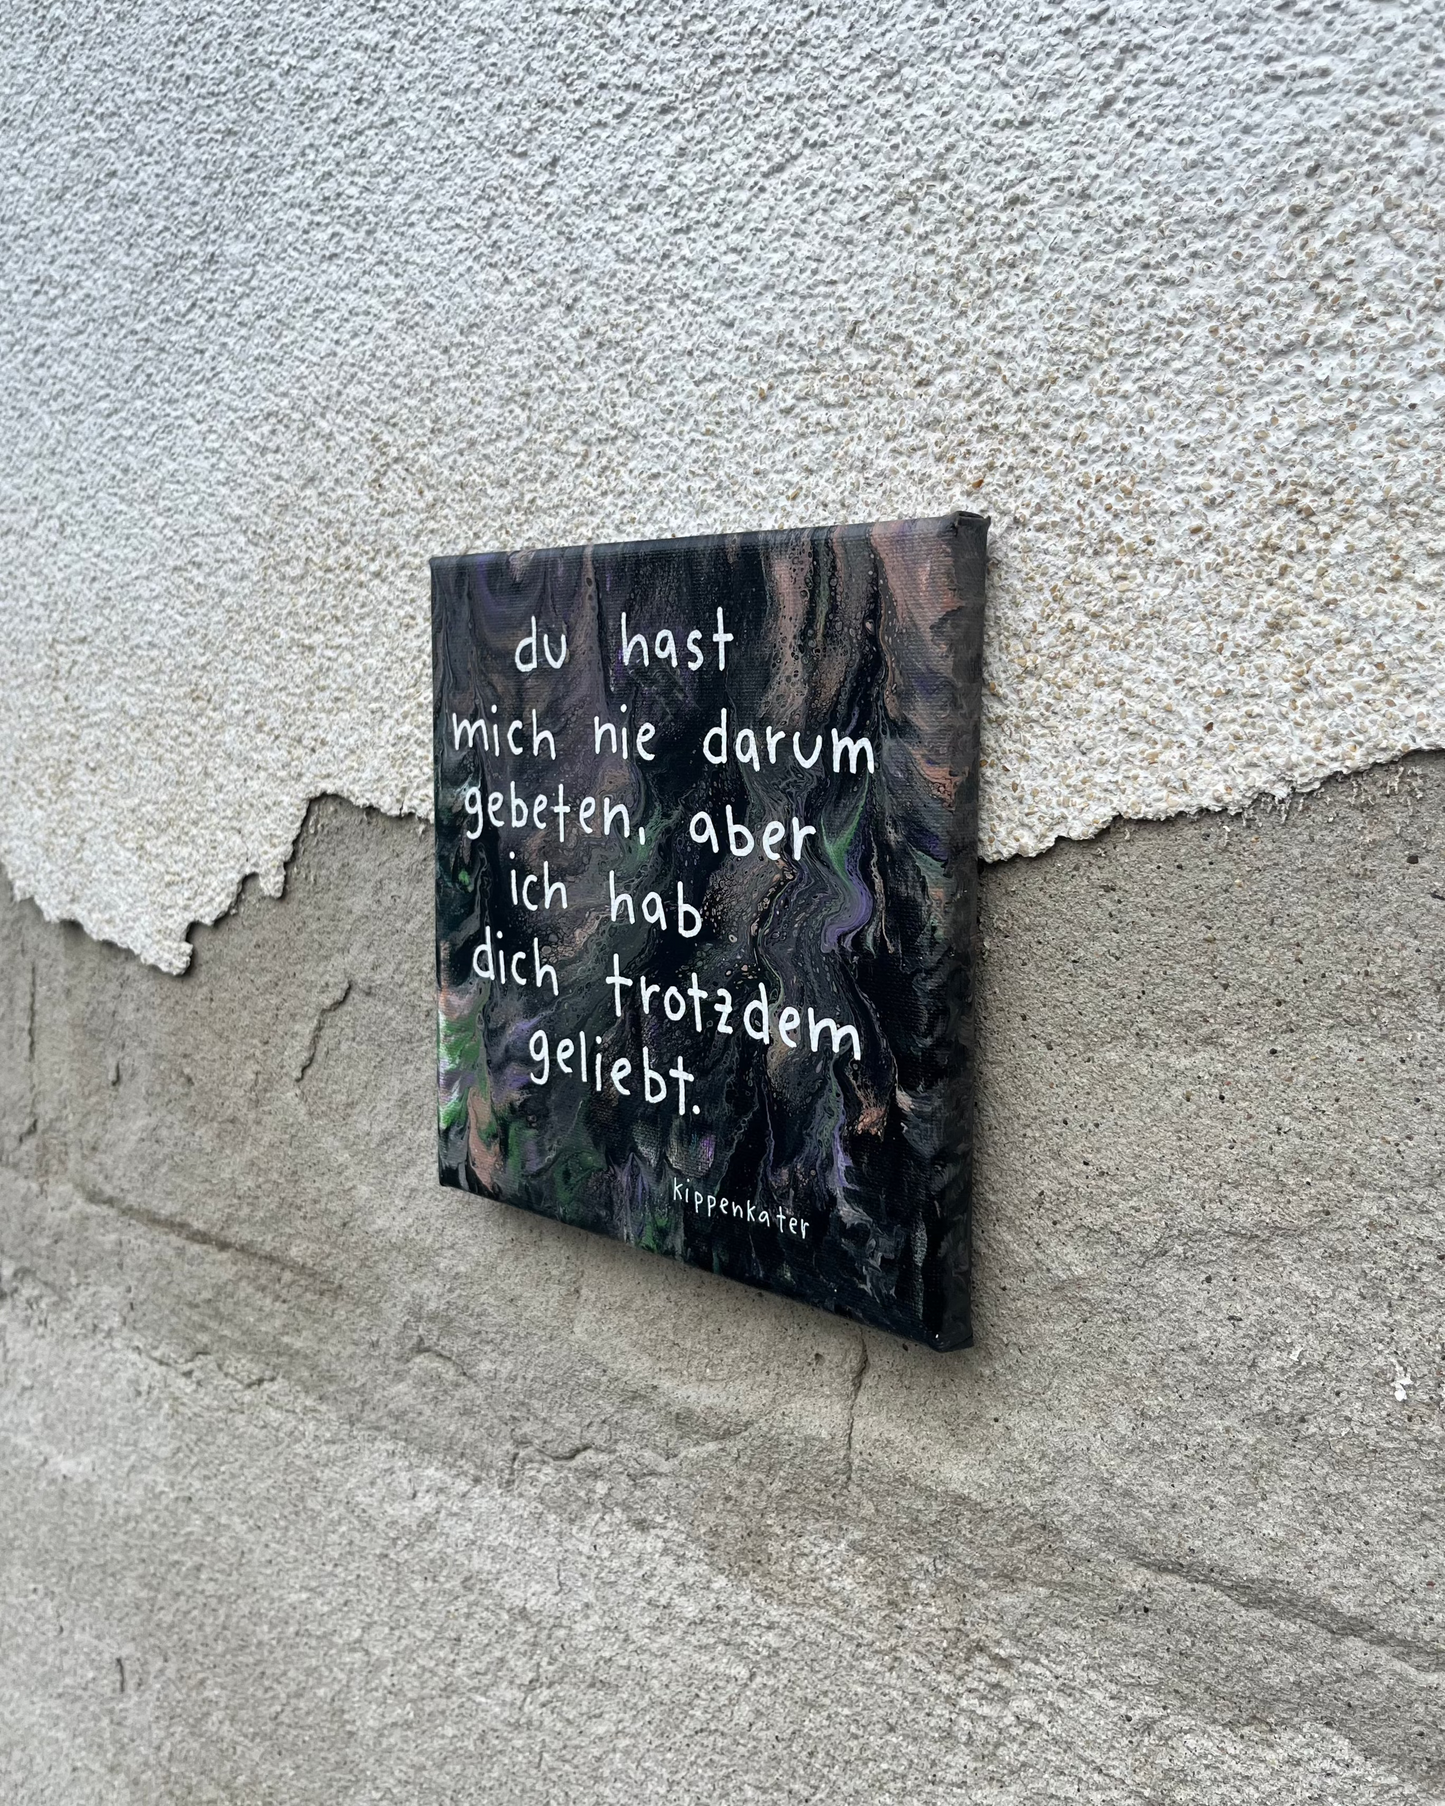 du hast
mich nie darum
gebeten, aber
ich hab
dich trotzdem
geliebt.
kippenkater